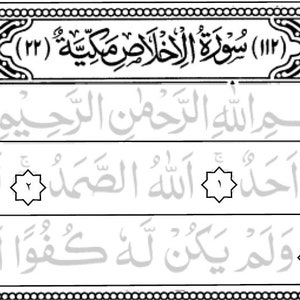 (١١٢) سُورَةُ الْإِخْلَاصِ مَكِّيَّةٌ (٢٢)
ـمِ اللهِ الرَّحْمٰنِ الرَّحِيمِ
اَحَدٌ ۚ ١ اَللهُ الصَّمَدُ ۚ ٢
وَلَمْ يَكُنْ لَّهٗ كُفُوًا